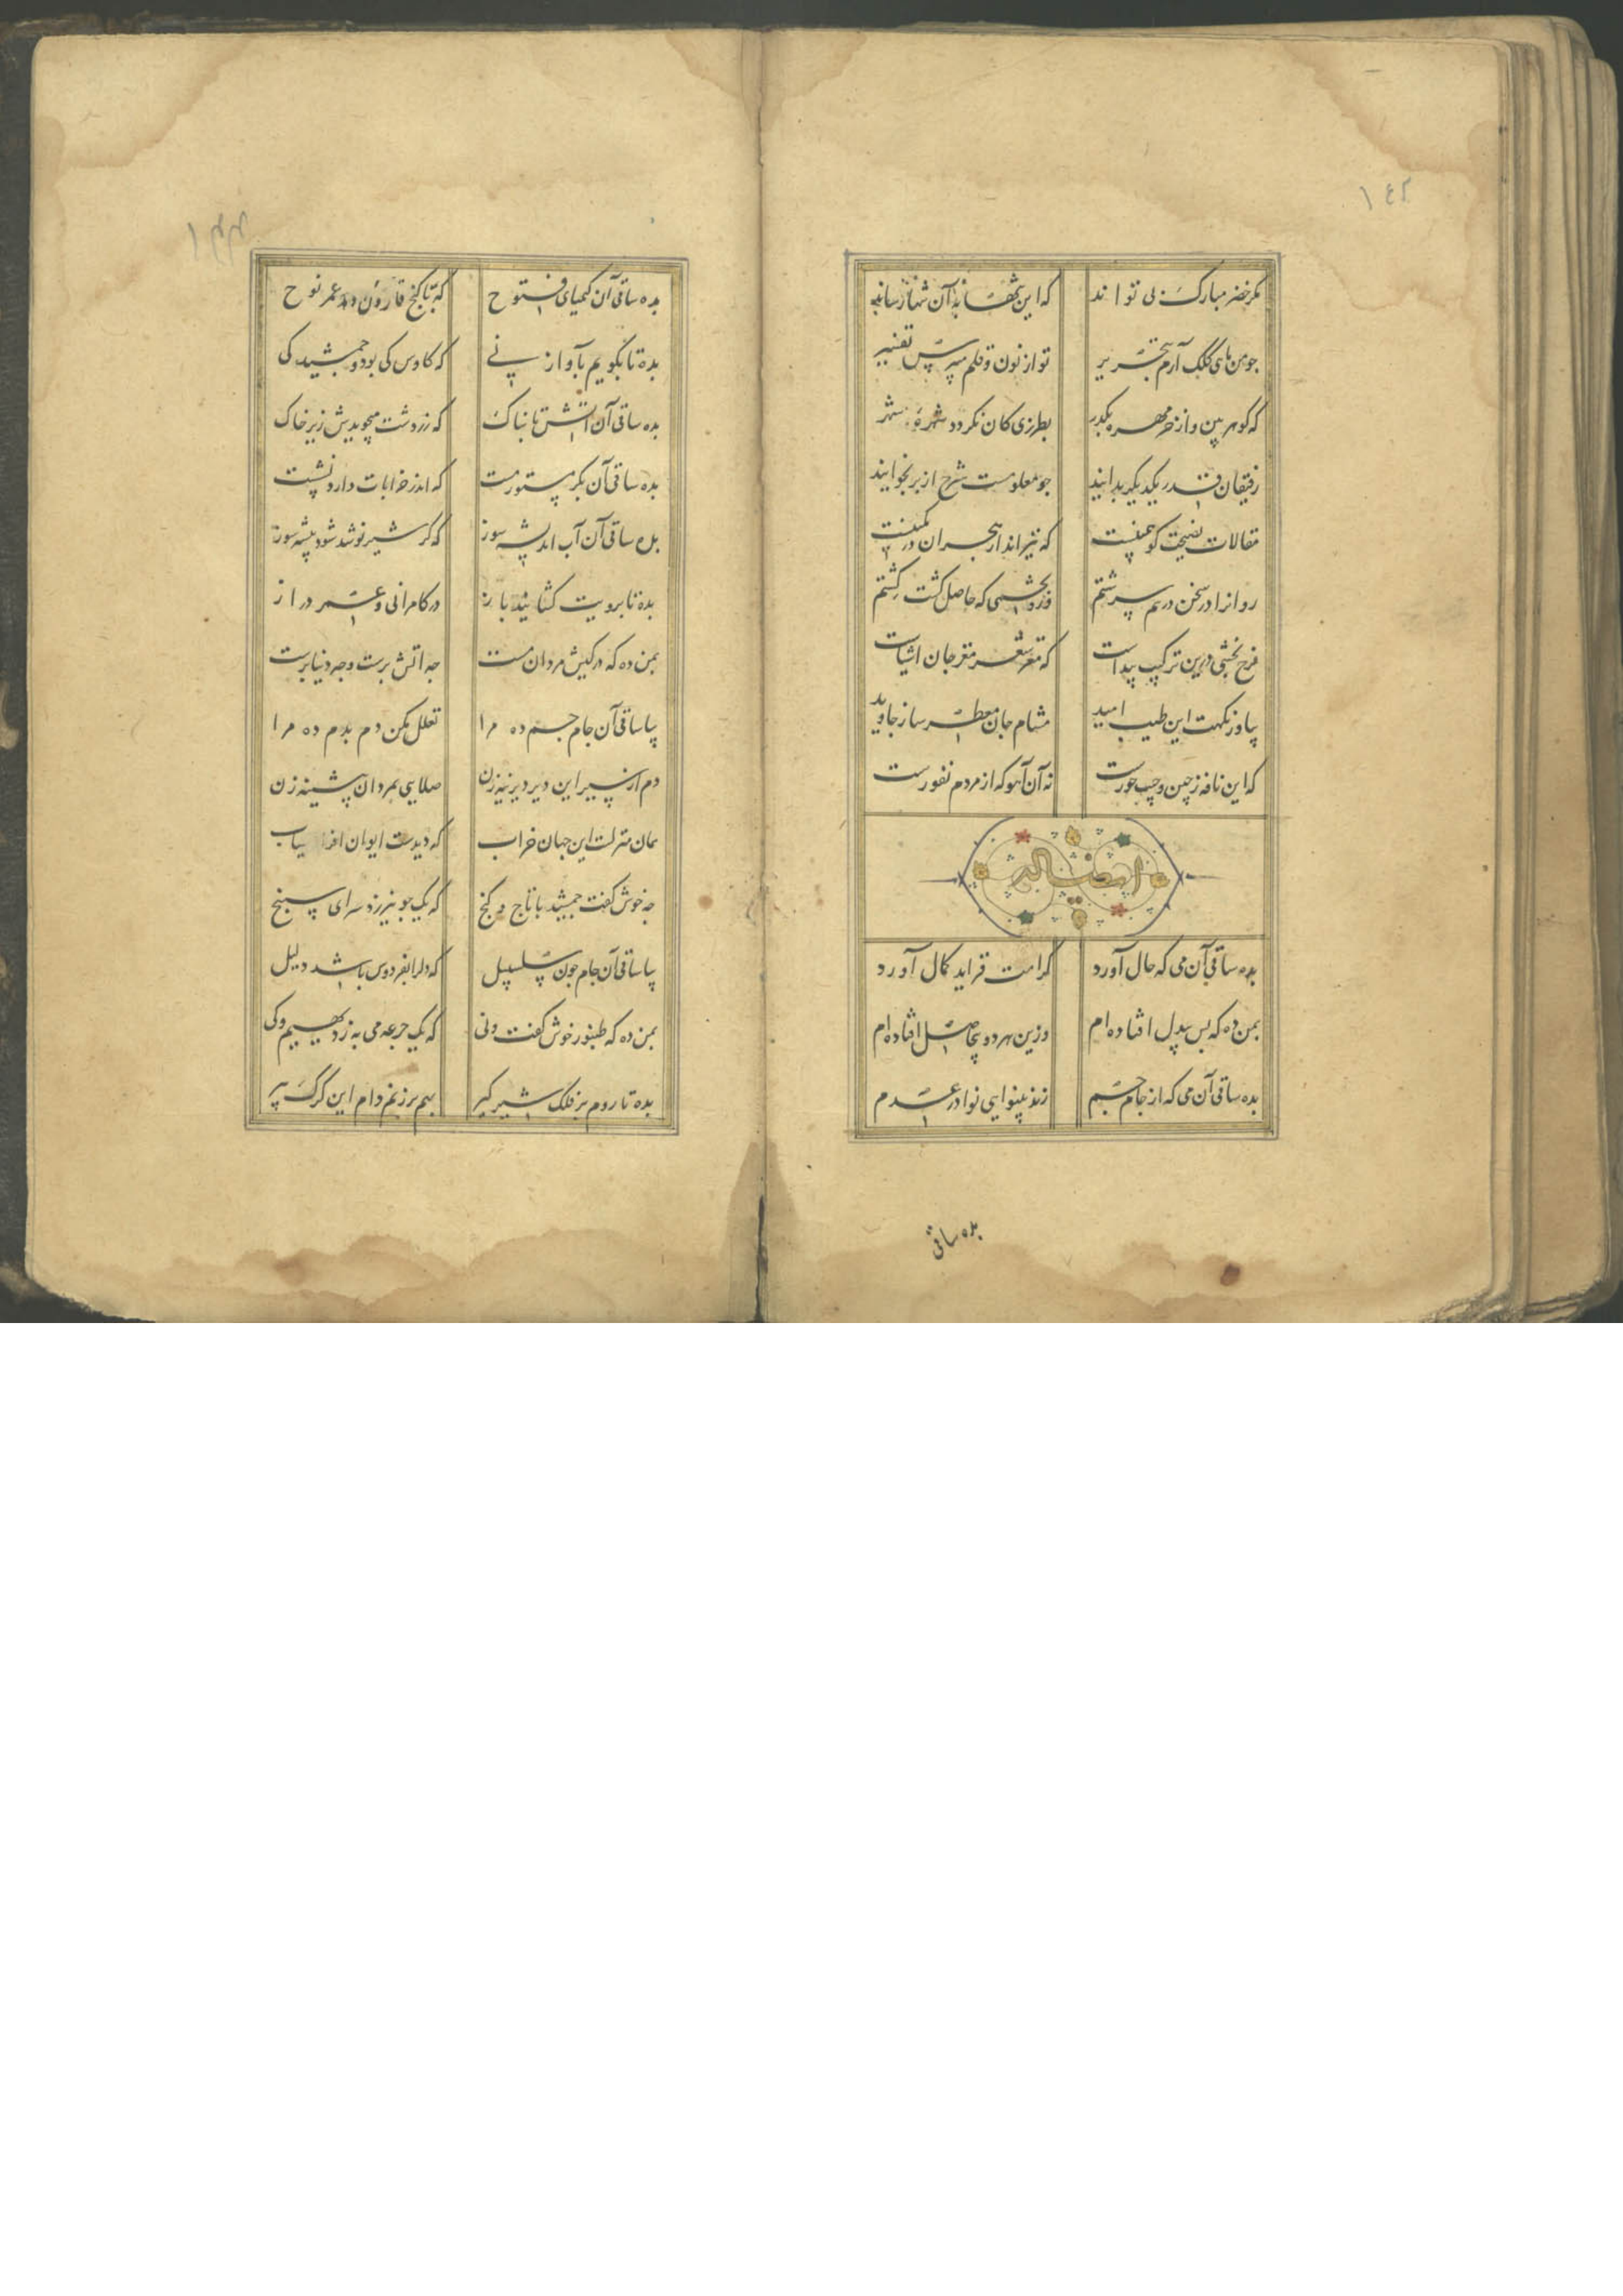 ۱٤۲
مکر خضر مبارک پی تواند که این تنها بدان تنها رساند
جو من ماهی کلک آرم بتحریر تو از نون و قلم میپرس تفسیر
که کوهر بین و از خرمهره بکذر بطرزی کان نکردد شهره
رفیقان قدر یکدیکر بدانید جو معلومست شرح از بر بخوانید
مقالات نصیحت کو همینست که تیرانداز هجران در کمینست
روانرا در سخن درهم سرشتم وزو تخمی که حاصل کشت کشتم
فرح بخشی درین ترکیب پیداست که مغز شعر مغز جان اشیاست
بیاور نکهت این طیب امید مشام جان معطر ساز جاوید
که این نافه ز چین وجیب حورست نه آن آهو که از مردم نفورست
ایضا له
بده ساقی آن می که حال آورد کرامت فزاید کمال آورد
بمن ده که بس بیدل افتاده ام وزین هر دو بیحاصل افتاده ام
بده ساقی آن می که از جام جم زند بینوایی نوا در عدم
بده ساقی
۱۴۳
بده ساقی آن کیمیای فتوح که تا کنج قارون دهد عمر نوح
بده تا بکویم بآواز نی که کاوس کی بود و جمشید کی
بده ساقی آن آتش تابناک که زردشت میجویدش زیر خاک
بده ساقی آن بکر مستور مست که اندر خرابات دارد نشست
بده ساقی آن آب اندیشه سوز که کر شیر نوشد شود بیشه سوز
بده تا برویت کشایند باز در کامرانی و عمر دراز
بمن ده که در کیش مردان مست جه آتش پرست و جه دنیا پرست
بیا ساقی آن جام جم ده مرا تعلل مکن دم بدم ده مرا
دم از سیر این دیر دیرینه زن صلایی بمردان پیشینه زن
همان منزلست این جهان خراب که دیدست ایوان افراسیاب
جه خوش کفت جمشید با تاج و کنج که یک جو نیرزد سرای سپنج
بیا ساقی آن جام جون سلسبیل که دلرا بفردوس باشد دلیل
بمن ده که طنبور خوش کفت و نی که یک جرعه می به ز دیهیم کی
بده تا روم بر فلک شیر کیر بهم بر زنم دام این کرک پیر